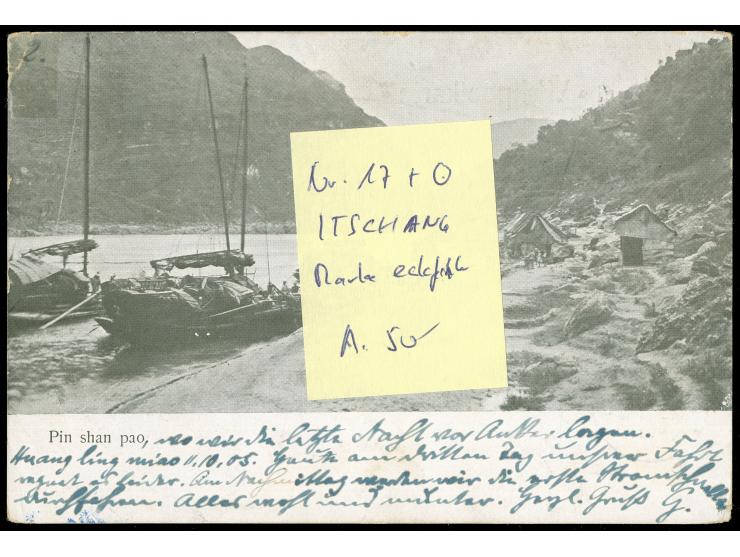 2.
Nr. 17 + O
ITSCHANG
Marke eckfehl
A. 50
Pin shan pao, wo wir die letzte Nacht vor Anker lagen.
Huang ling miao 11.10.05. Heute am dritten Tag unserer Fahrt
regnet es leider. Am Nachmittag werden wir die erste Stromschnelle
durchfahren. Alles wohl und munter. Herzl. Gruß G.